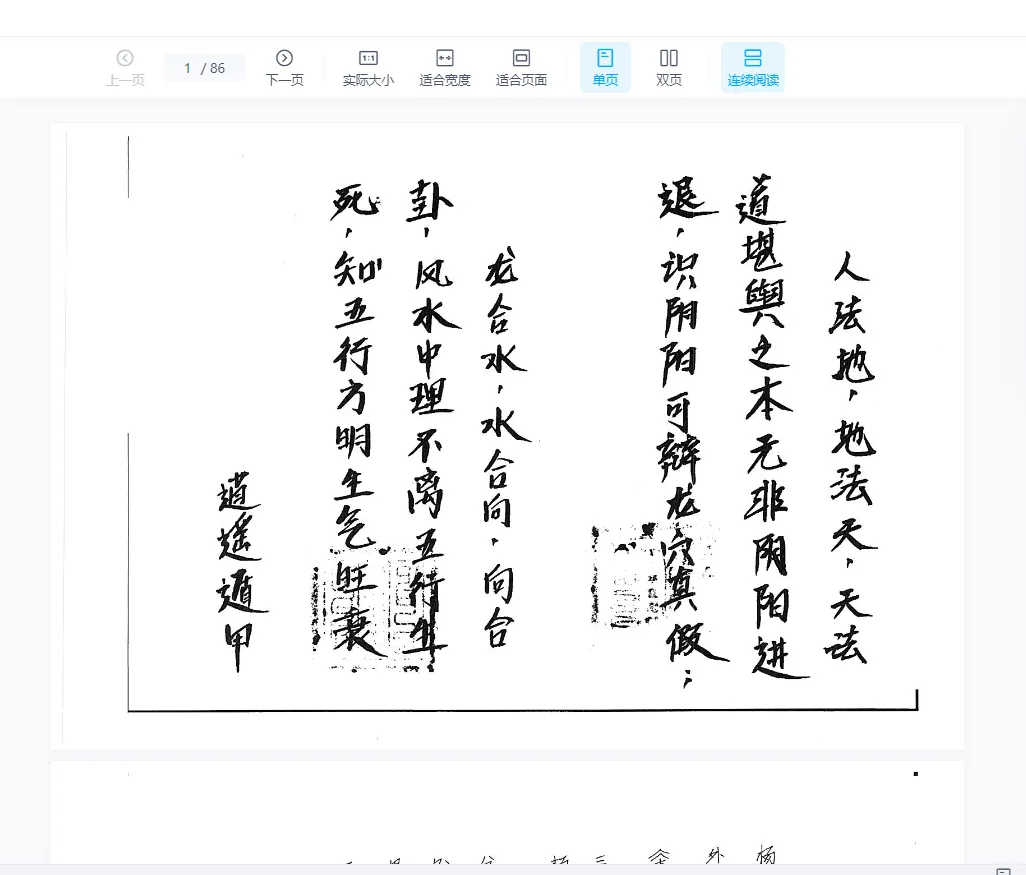 上一页
1 / 86
下一页
实际大小
适合宽度
适合页面
单页
双页
连续阅读
人法地，地法天，天法
道堪舆之本无非阴阳进
退，识阴阳可辩龙穴真假；
龙合水，水合向，向合
卦，风水中理不离五行生
死，知五行方明生气旺衰
逍遥遁甲
杨
外